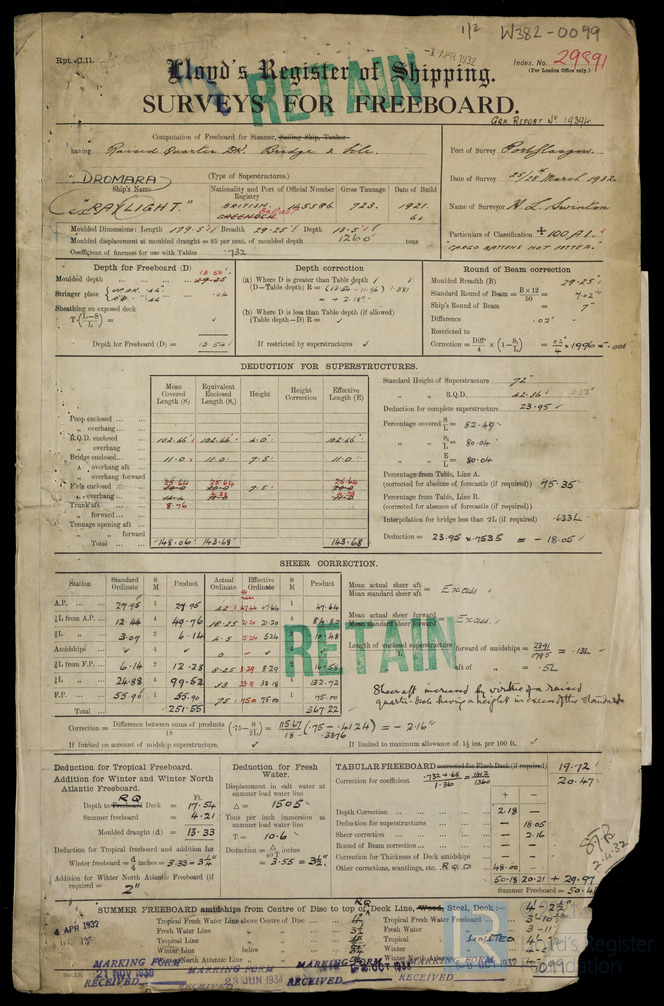 1/2 W382-0099
Rpt. C.11.
-1 APR 1932
Index. No. 29891
(For London Office only.)
Lloyd's Register of Shipping.
RETAIN
SURVEYS FOR FREEBOARD.
Grk. Report No 19394
Computation of Freeboard for Steamer, Sailing Ship, Tanker
having Raised Quarter Dk. Bridge & Fcle.
(Type of Superstructures.)
Port of Survey Port Glasgow.
DROMARA
Ship's Name
"RAYLIGHT."
Nationality and Port of Registry
BRITISH.
GREENOCK
Belfast
Official Number
145586.
Gross Tonnage
723.
Date of Build
1921.
Date of Survey 25/28th March 1932
Name of Surveyor H. L. Swinton
Moulded Dimensions: Length 179.5' Breadth 29.25' Depth 13.5'
Moulded displacement at moulded draught = 85 per cent. of moulded depth 1260 tons
Coefficient of fineness for use with Tables .732
Particulars of Classification + 100 A1.
"CARGO BATTENS NOT FITTED."
Depth for Freeboard (D)
Moulded depth 13.50'
Stringer plate .04
Sheathing on exposed deck
T (L-S/L) =
Depth for Freeboard (D) = 13.54'
Depth correction
(a) Where D is greater than Table depth
(D—Table depth) R = (13.54 - 11.96) 1.381
= + 2.18"
(b) Where D is less than Table depth (if allowed)
(Table depth—D) R =
If restricted by superstructures
Round of Beam correction
Moulded Breadth (B) 29.25'
Standard Round of Beam = B×12/50 = 7.02"
Ship's Round of Beam = 7"
Difference .02"
Restricted to
Correction = Diff/4 × (1-S1/L) = .02/4 × .1996 = .001
DEDUCTION FOR SUPERSTRUCTURES.
Mean Covered Length (S)
Equivalent Enclosed Length (S1)
Height
Height Correction
Effective Length (E)
Poop enclosed
„ overhang
R.Q.D. enclosed 102.66' 102.66' 4.0' 102.66'
„ overhang
Bridge enclosed 11.0 11.0 7.5' 11.0
„ overhang aft
„ overhang forward
F'cle enclosed 25.64 25.64 7.5' 25.64
„ overhang 4.38 4.38
Trunk aft 8.76
„ forward
Tonnage opening aft
„ „ forward
Total 148.06' 143.68' 143.68
Standard Height of Superstructure 72"
„ „ R.Q.D.
Deduction for complete superstructure 23.95
Percentage covered S/L = 82.49
„ „ S1/L = 80.04
„ „ E/L = 80.04
Percentage from Table, Line A.
(corrected for absence of forecastle (if required)) 75.35
Percentage from Table, Line B.
(corrected for absence of forecastle (if required))
Interpolation for bridge less than .2L (if required) .633L
Deduction = 23.95 × .7535 = - 18.05
SHEER CORRECTION.
Station
Standard Ordinate
S M
Product
Actual Ordinate
Effective Ordinate
S M
Product
A.P. 27.95 1 27.95 47.64 1 47.64
⅙L from A.P. 12.44 4 49.76 18.25 21.20 4 84.80
⅓L „ 3.07 2 6.14 4.5 5.24 2 10.48
Amidships 4 0 4
⅓L from F.P. 6.14 2 12.28 8.25 8.29 2 16.58
⅙L „ 24.88 4 99.52 33 33.18 4 132.72
F.P. 55.90 1 55.90 75 75.00 1 75.00
Total 251.55 367.22
Mean actual sheer aft
Mean standard sheer aft = Excess
Mean actual sheer forward
Mean standard sheer forward = Excess
Length of enclosed superstructure forward of amidships = 23.91/179.5 = .13L
„ aft of „ = .5L
RETAIN
Sheer aft increased by virtue of a raised
quarter deck having a height in excess of the standard
Correction = Difference between sums of products/18 (.75-S/2L) = 115.67/18 (.75-.4124) = - 2.16"
.3376
If limited on account of midship superstructure.
If limited to maximum allowance of 1½ ins. per 100 ft.
Deduction for Tropical Freeboard.
Addition for Winter and Winter North Atlantic Freeboard.
Ft.
Depth to RQ Freeboard Deck = 17.54
Summer freeboard = 4.21
Moulded draught (d) = 13.33
Deduction for Tropical freeboard and addition for
Winter freeboard = d/4 inches = 3.33 = 3¼"
Addition for Winter North Atlantic Freeboard (if required) = 2"
Deduction for Fresh Water.
Displacement in salt water at summer load water line
Δ = 1505
Tons per inch immersion at summer load water line
T = 10.6
Deduction = Δ/40T inches
= 3.55 = 3½"
TABULAR FREEBOARD corrected for Flush Deck (if required) 19.72
Correction for coefficient .732+.68/1.36 = 1412/1360 20.47
+ −
Depth Correction 2.18 −
Deduction for superstructures − 18.05
Sheer correction − 2.16
Round of Beam correction − −
Correction for Thickness of Deck amidships − −
Other corrections, scantlings, etc. R.Q.D 48.00 −
50.18 20.21 + 29.97
Summer Freeboard = 50.44
2.4.32
SUMMER FREEBOARD amidships from Centre of Disc to top of RQ Deck Line, Wood, Steel, Deck:— 4'- 2½"
Tropical Fresh Water Line above Centre of Disc
Fresh Water Line „ 3½
Tropical Line „
Winter Line below „
Winter North Atlantic Line „
Tropical Fresh Water Freeboard
Fresh Water „ 3 - 11
Tropical „
Winter „
Winter North Atlantic „
LIMITED
4 APR 1932
MARKING FORM
21 NOV 1938
RECEIVED
MARKING FORM
23 JUN 1934
RECEIVED
MARKING FORM
OCT 1938
RECEIVED
MARKING FORM
OCT 1937
RECEIVED
LR
Lloyd's Register
Foundation